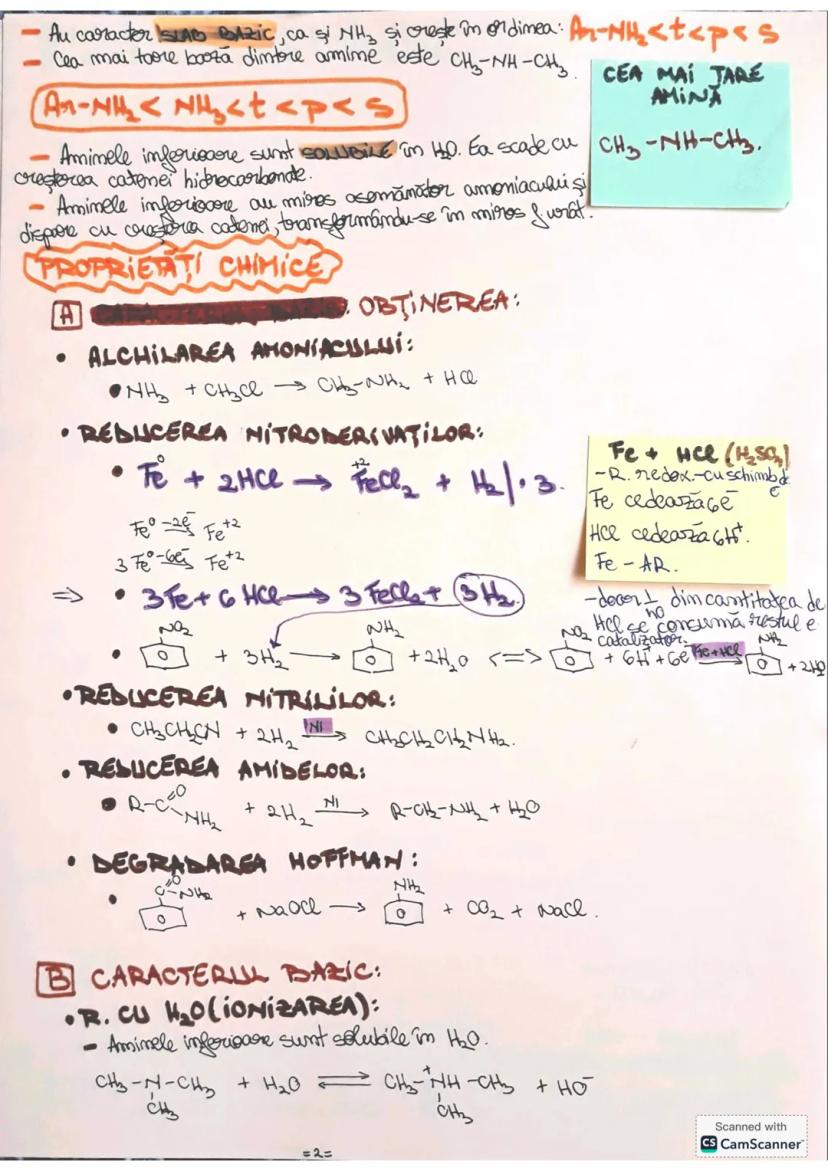 - Au caracter SLAB BAZIC, ca și NH₃ și crește în ordinea: Ar-NH₂ < t < p < s
- Cea mai tare bază dintre amine este CH₃-NH-CH₃.
CEA MAI TARE
AMINĂ
CH₃-NH-CH₃.
Ar-NH₂ < NH₃ < t < p < s
- Aminele inferioare sunt SOLUBILE în H₂O. Ea scade cu
creșterea catenei hidrocarbonate.
- Aminele inferioare au miros asemănător amoniacului și
dispare cu creșterea catenei, transformându-se în miros f. urât.
PROPRIETĂȚI CHIMICE
A CARACTERUL BAZIC: OBȚINEREA:
• ALCHILAREA AMONIACULUI:
• NH₃ + CH₃Cl → CH₃-NH₂ + HCl
• REDUCEREA NITRODERIVAȚILOR:
• Fe⁰ + 2HCl → Fe⁺²Cl₂ + H₂ | · 3.
Fe⁰ -2e⁻→ Fe⁺²
3Fe⁰ -6e⁻→ Fe⁺²
⇒ • 3Fe + 6HCl → 3FeCl₂ + 3H₂.
Fe + HCl (H₂SO₄)
- R. redox - cu schimb de e⁻
Fe cedează 6e⁻
HCl cedează 6H⁺.
Fe - AR.
- doar 1/40 din cantitatea de
HCl se consumă restul e
catalizator.
NO₂ NH₂ NO₂ NH₂
• + 3H₂ → + 2H₂O <=> + 6H⁺ + 6e⁻ Fe+HCl→ + 2H₂O
• REDUCEREA NITRILILOR:
• CH₃CH₂CN + 2H₂ Ni→ CH₃CH₂CH₂NH₂.
• REDUCEREA AMIDELOR:
• R-C=O NH₂ + 2H₂ Ni→ R-CH₂-NH₂ + H₂O
• DEGRADAREA HOFFMAN:
C=O-NH₂ NH₂
• + NaOCl → + CO₂ + NaCl.
B CARACTERUL BAZIC:
• R. CU H₂O (IONIZAREA):
- Aminele inferioare sunt solubile în H₂O.
CH₃-N-CH₃ + H₂O ⇌ CH₃-⁺NH-CH₃ + HO⁻
CH₃ CH₃
=2=
Scanned with
CS CamScanner